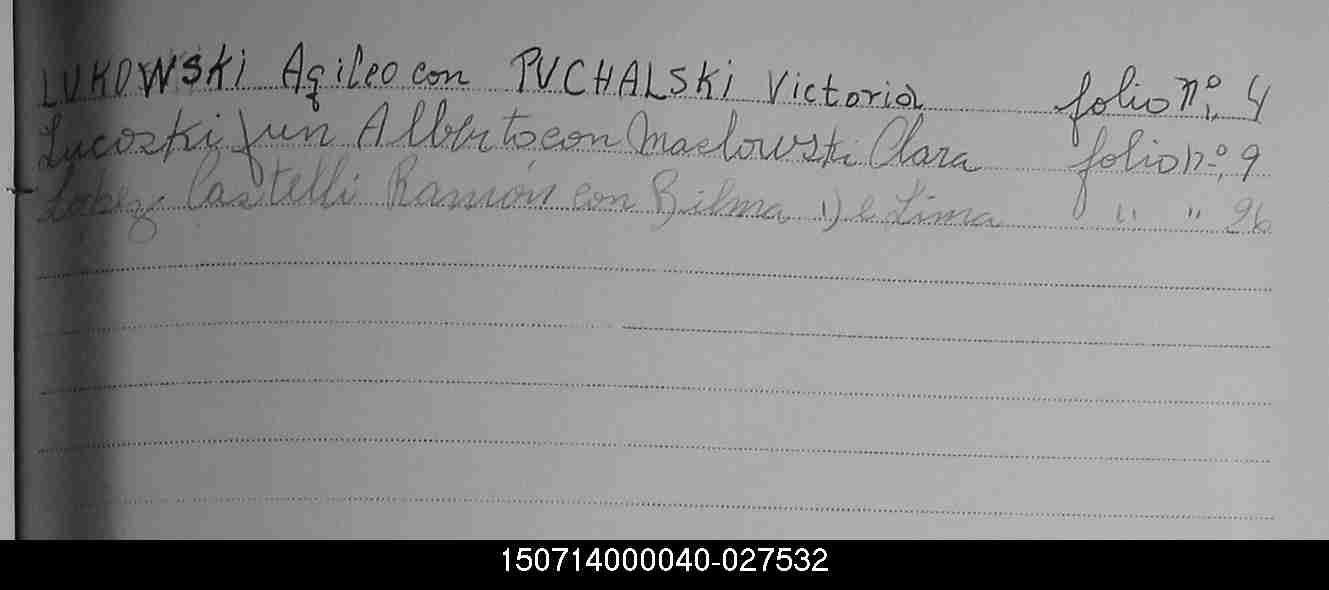 LUKOWSKi Aqileo con PUCHALSKi Victoria folio nº. 4
Lucoski Juan Alberto con Maslowski Clara folio nº. 9
Lopez Castelli Ramón con Bilma De Lima " " 26
150714000040-027532